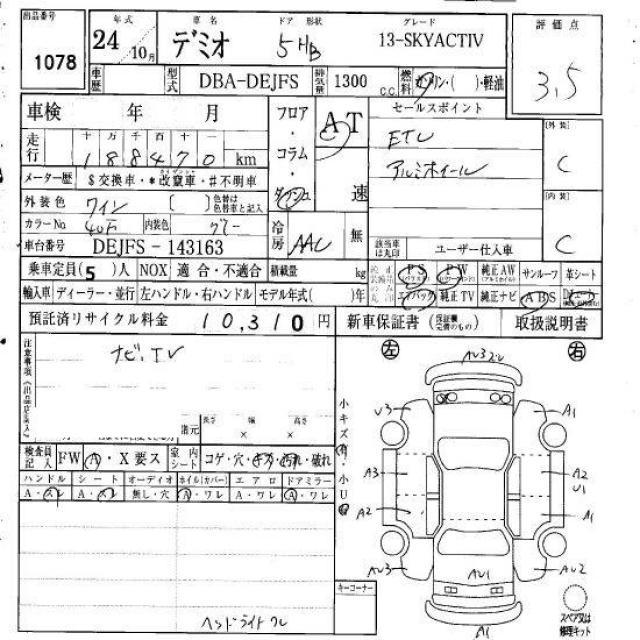 出品番号
1078
年式
24年10月
車名
デミオ
ドア 形状
5HB
グレード
13-SKYACTIV
評価点
3.5
車歴
型式
DBA-DEJFS
排気量
1300 C.C.
燃料
ガソリン・( )・軽油
車検 年 月
フロア・コラム・ダッシュ
AT
速
セールスポイント
ETC
アルミホイール
[外装]
C
[内装]
C
走行
十 万 千 百 十 一
188470 km
メーター歴
$交換車・*改竄車・#不明車
外装色
ワイン
[ ]
色替は色替車と記入
カラーNo
内装色
グレー
冷房
AAC
無
該当車は丸印
ユーザー仕入車
車台番号
DEJFS-143163
乗車定員(5)人
NOX
適合・不適合
積載量
kg
PS
PW
純正AW
サンルーフ
革シート
輸入車
ディーラー・並行
左ハンドル・右ハンドル
モデル年式( )年
エアバック
純正TV
純正ナビ
ABS
預託済リサイクル料金
10,310円
新車保証書
(保証欄完備のもの)
取扱説明書
注意事項《出品店記入》
ナビ.TV
諸元
長さ × 幅 × 高さ
左
右
AU3
U3
A1
A3
A2
U1
A2
A1
AU3
AU1
AU2
A1
小キズ有・小U有
検査員記入
FW
A・X要ス
室内シート
コゲ・穴・キズ・汚れ・破れ
ハンドル
シート
オーディオ
ホイル(カバー)
エアロ
ドアミラー
A・スレ
A・スレ
無し・穴
A・ワレ
A・ワレ
A・ワレ
ヘッドライトワレ
キーコーナー
スペア又は修理キット